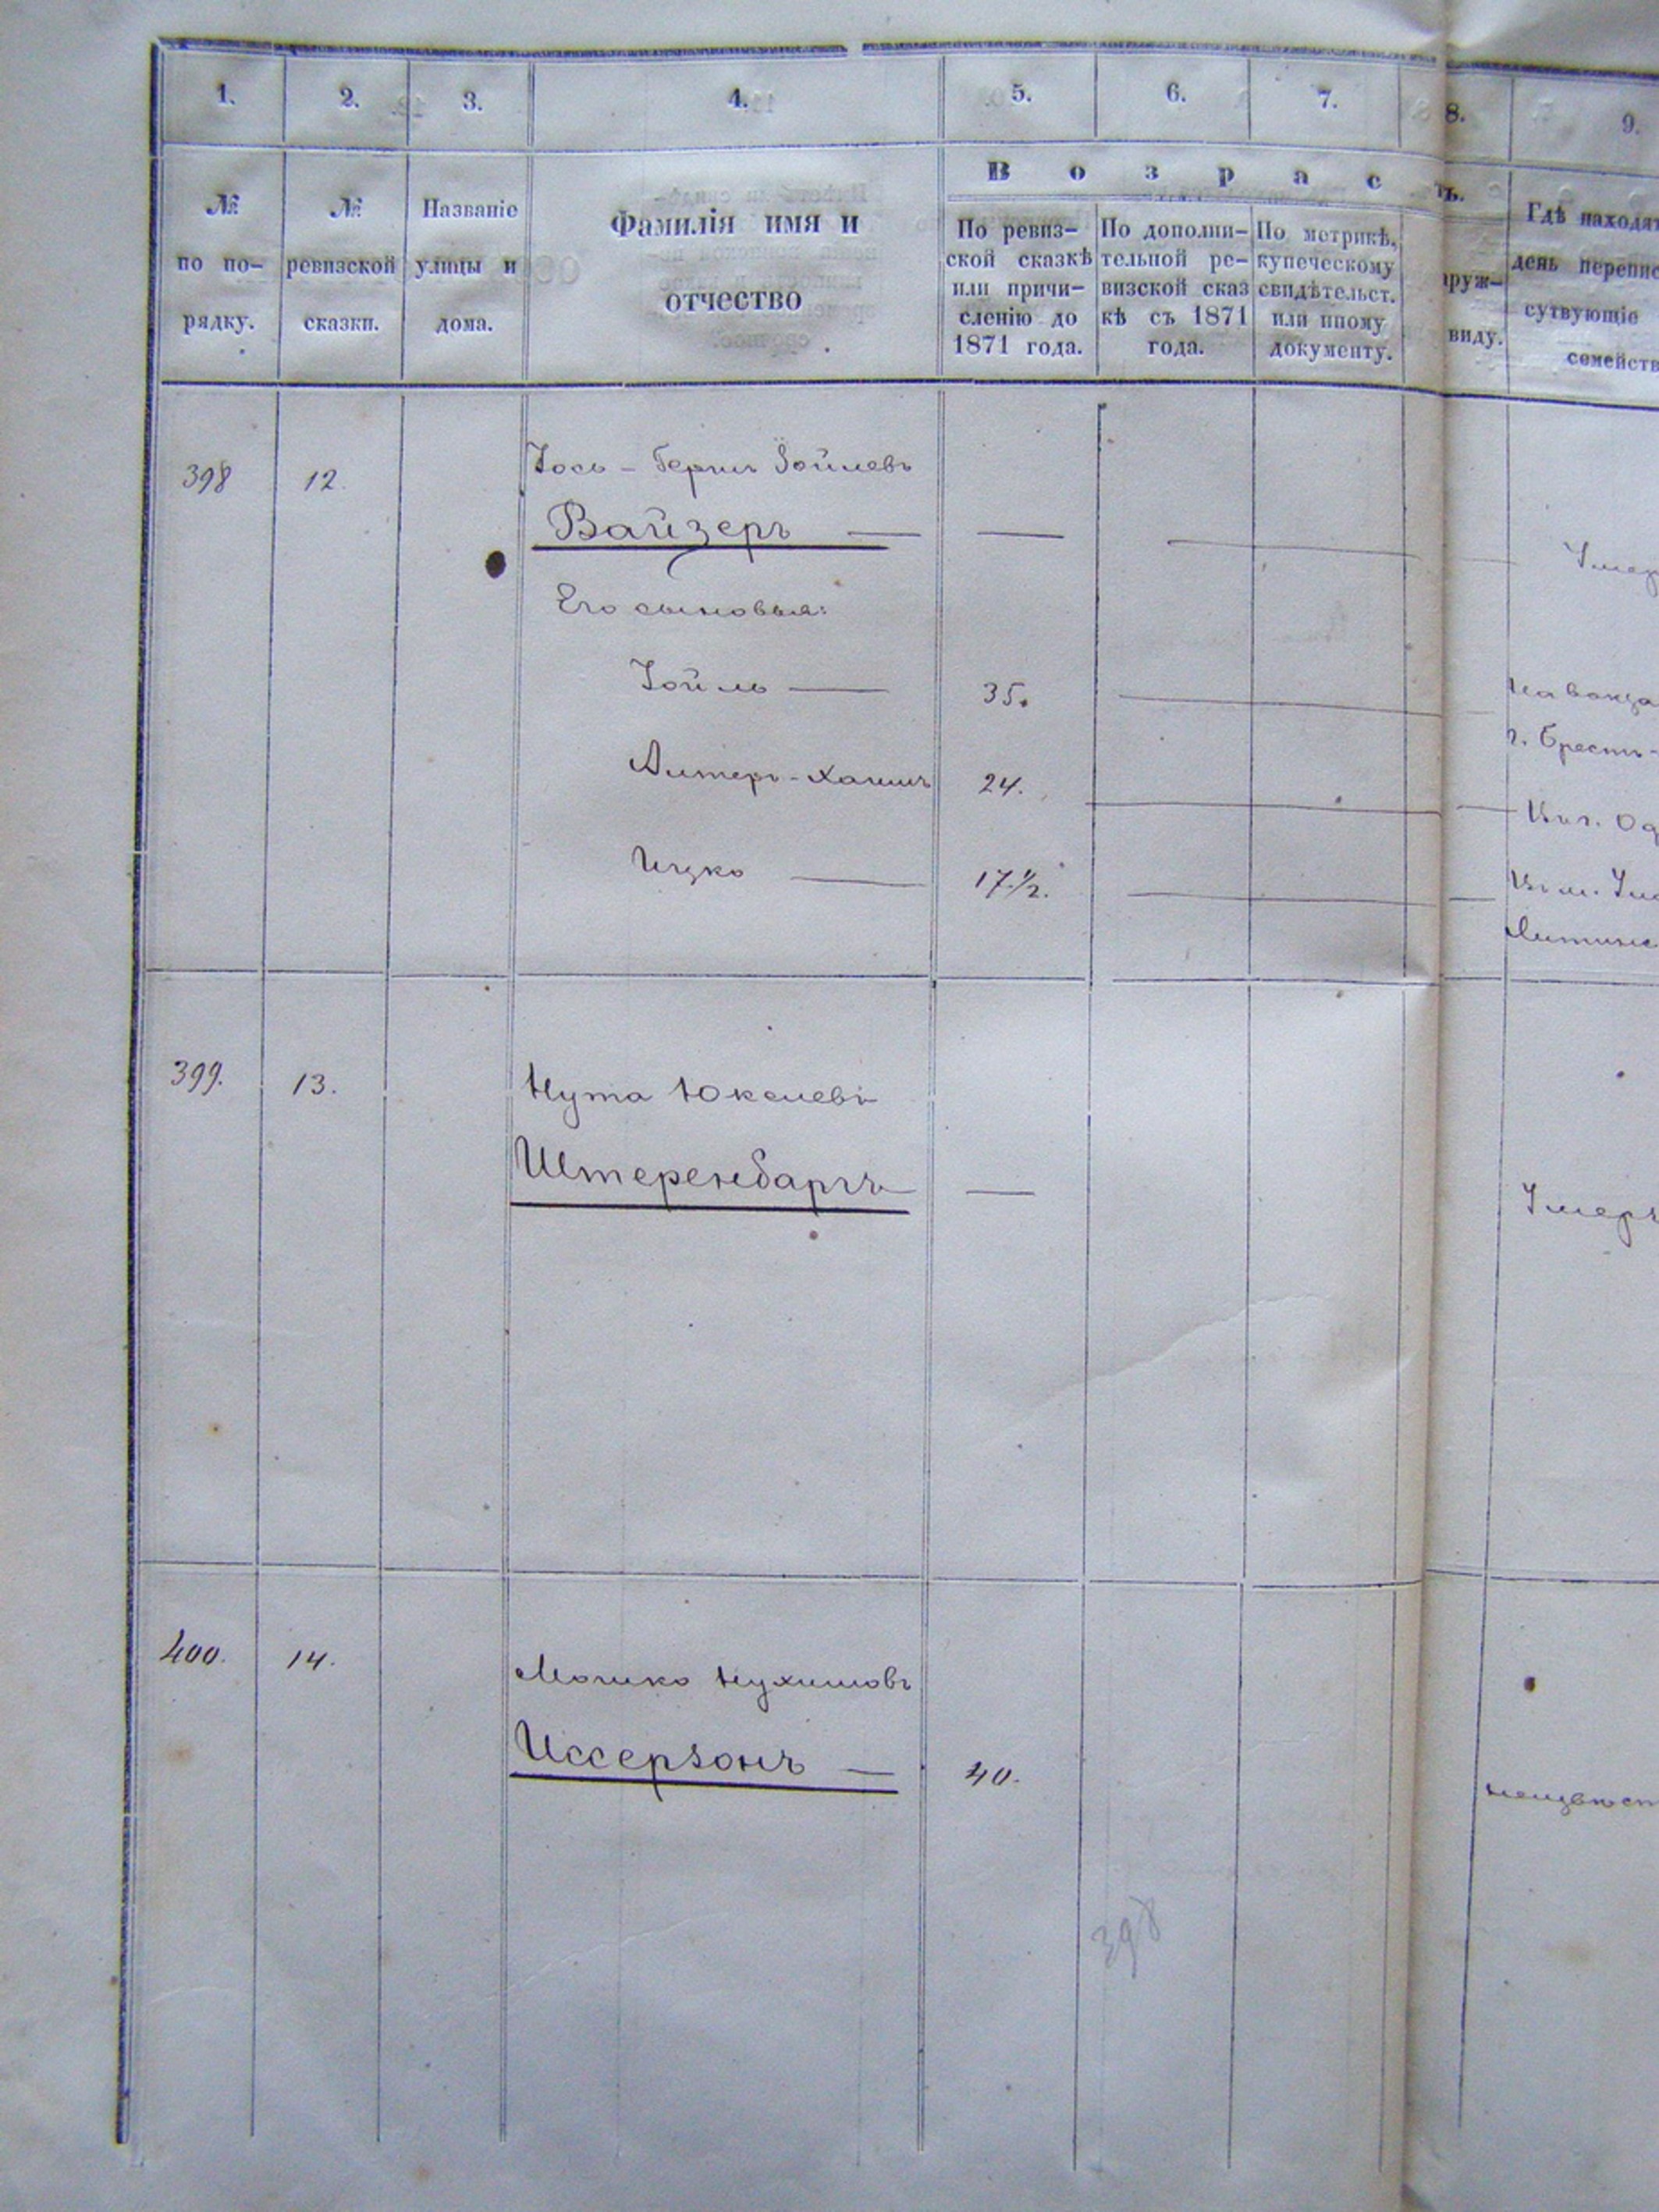 1. 2. 3. 4. 5. 6. 7. 8. 9.
№ по по-рядку.
№ ревизской сказки.
Названіе улицы и дома.
Фамилія имя и
отчество
Возрасть.
По ревиз-
ской сказкѣ
или причи-
сленію до
1871 года.
По дополни-
тельной ре-
визской сказ
кѣ съ 1871
года.
По метрикѣ,
купеческому
свидѣтельст.
или иному
документу.
аруж-
виду.
Гдѣ находят
день перепис
сутвующіе
семейств
398 12. Іось-Гершъ Іойлевъ
Вайзеръ — — Умер
Его сыновья:
Іойль — 35. На вокза
г. Брестъ-
Алтеръ-Хаимъ 24. Въ г. Од
Ицко — 17 1/2. Въ м. Ула
Литинс
399. 13. Нута Юкелевъ
Штеренбаргъ — Умеръ
400. 14. Мошко Нухимовъ
Иссерзонъ — 40. неизвѣст
398